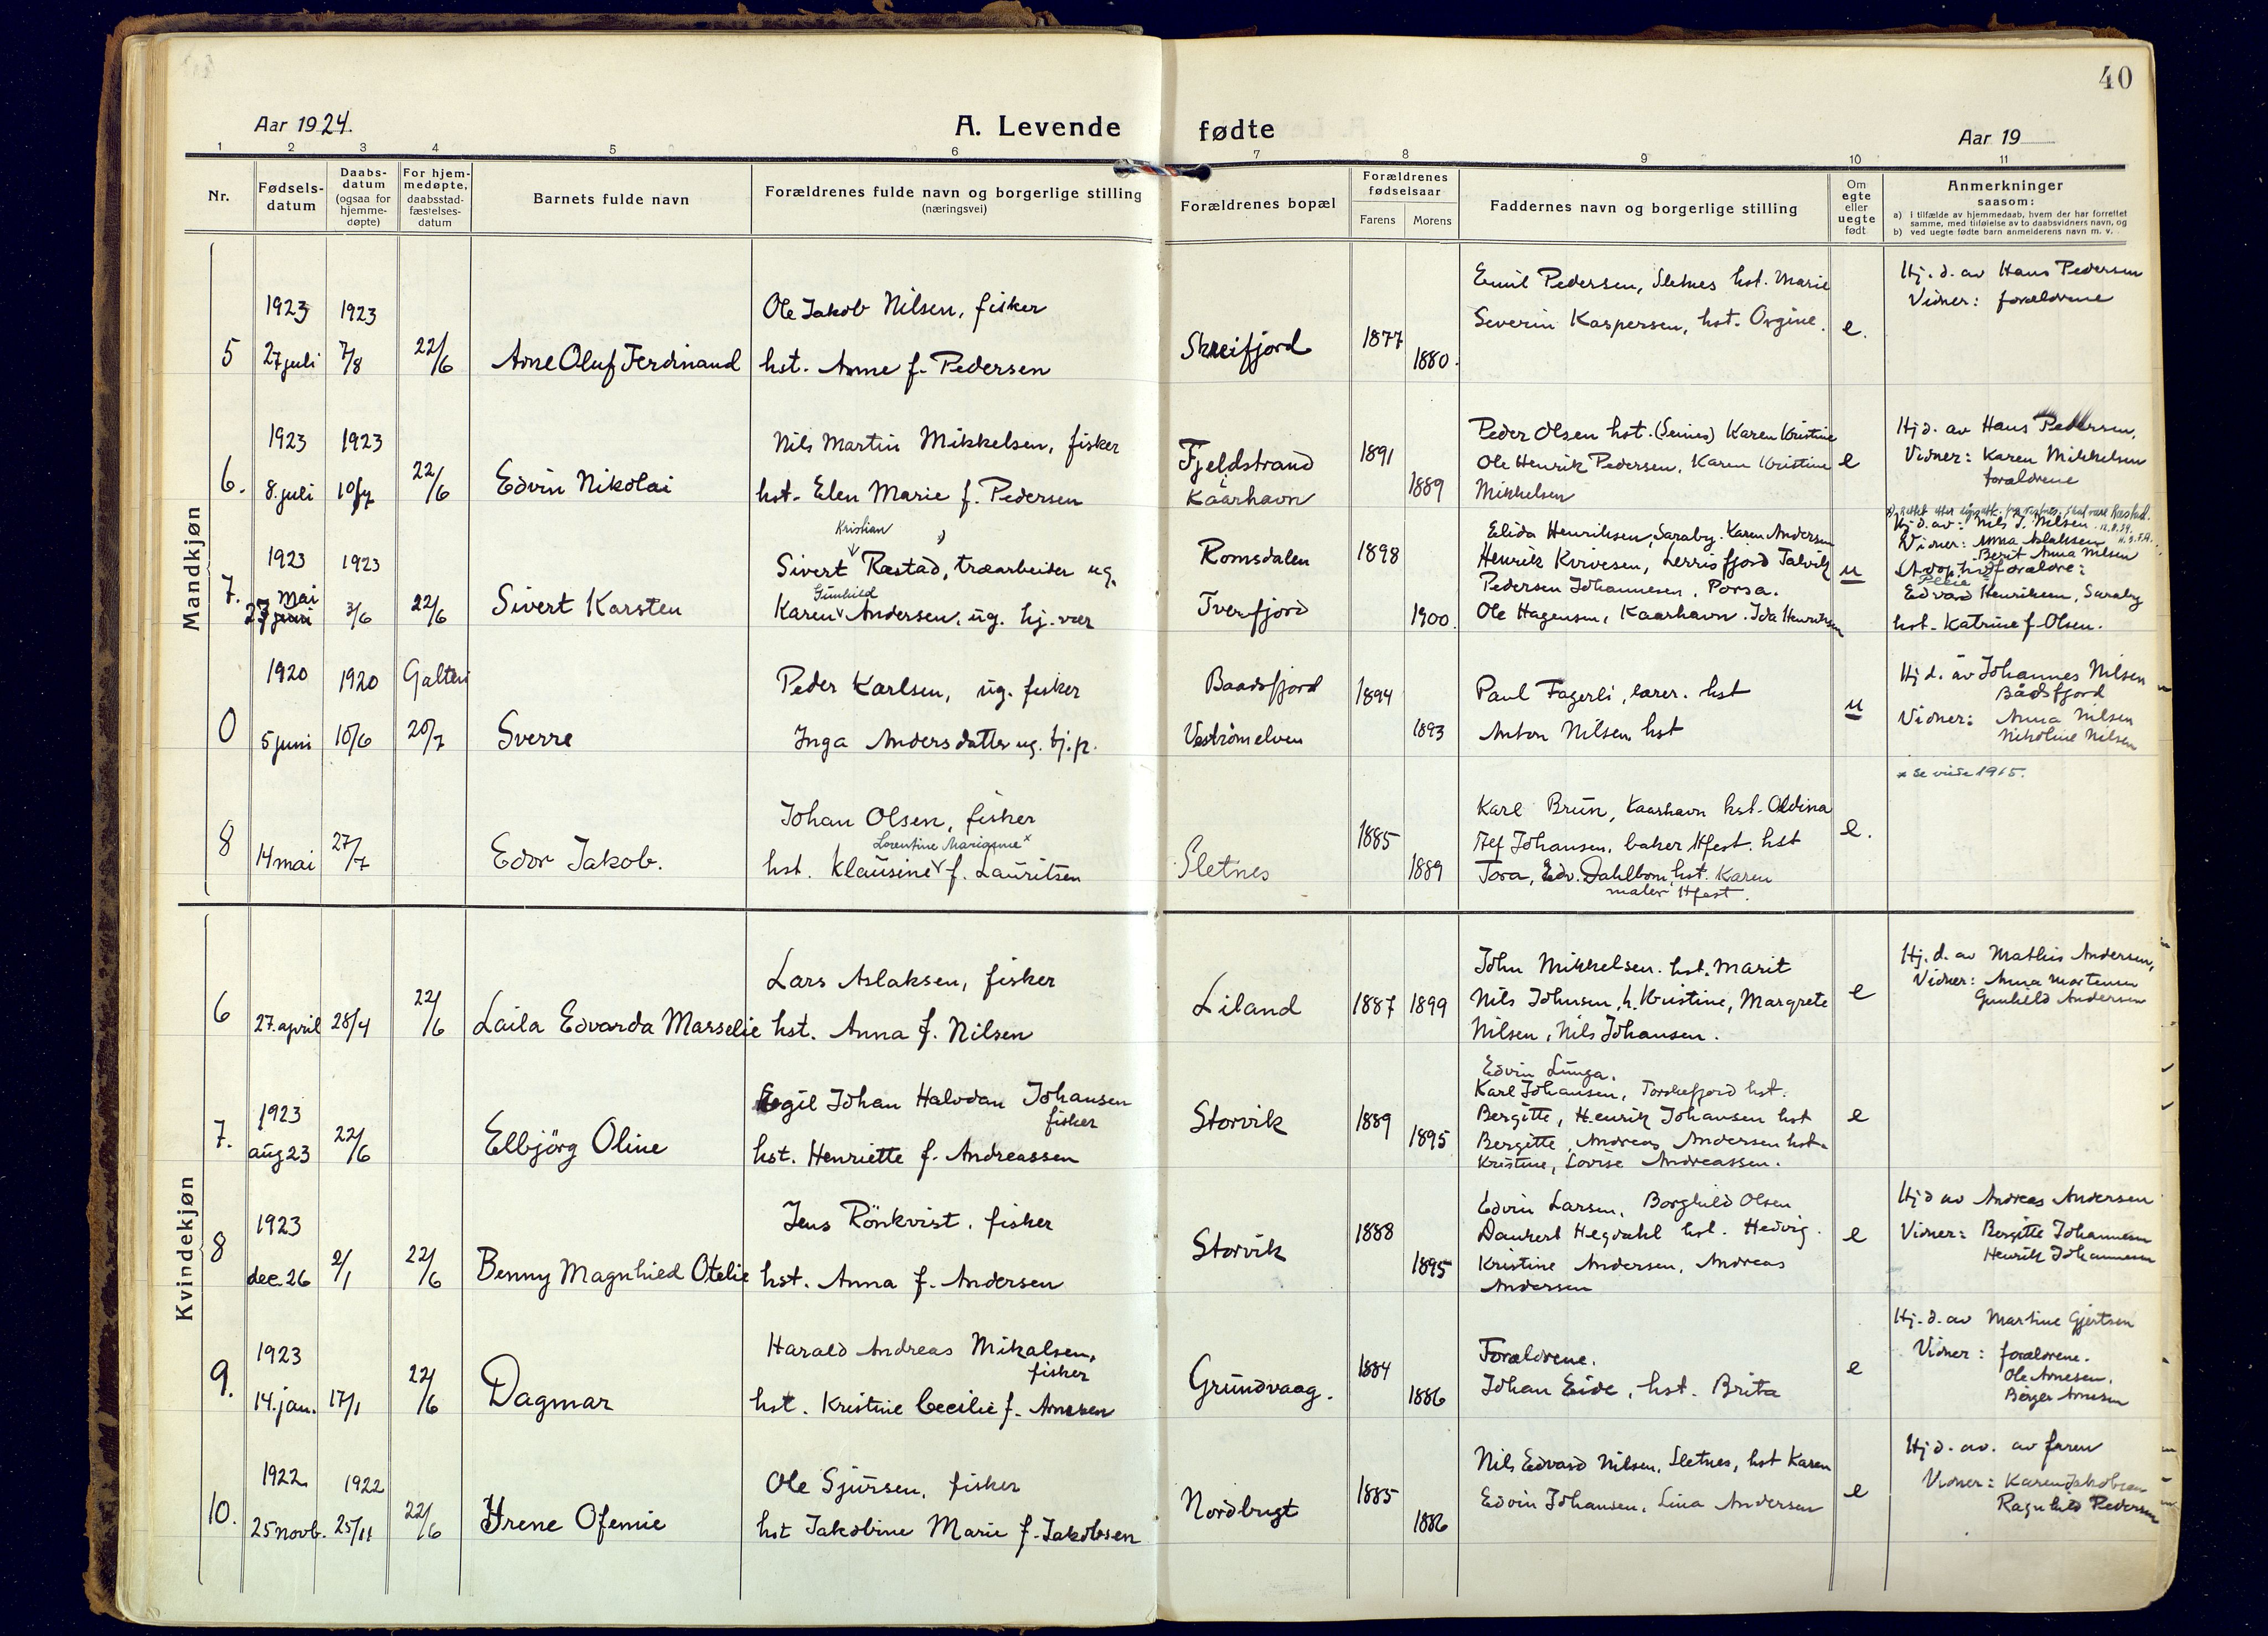 40
Aar 1924.
A. Levende fødte
Aar 19
1 2 3 4 5 6 7 8 9 10 11
Nr.
Fødsels-
datum
Daabs-
datum
(ogsaa for
hjemme-
døpte)
For hjem-
medøpte,
daabsstad-
fæstelses-
datum
Barnets fulde navn
Forældrenes fulde navn og borgerlige stilling
(næringsvei)
Forældrenes bopæl
Forældrenes
fødselsaar
Farens
Morens
Faddernes navn og borgerlige stilling
Om
egte
eller
uegte
født
Anmerkninger
saasom:
a) i tilfælde av hjemmedaab, hvem der har forrettet
samme, med tilføielse av to daabsvidners navn, og
b) ved uegte fødte barn anmelderens navn m. v.
Mandkjøn
5
1923
27 juli
1923
7/8
22/6
Arne Oluf Ferdinand
Ole Jakob Nilsen, fisker
hst. Anne f. Pedersen
Skreifjord
1877
1880.
Emil Pedersen, Sletnes hst. Marie
Severin Kaspersen, hst. Orgine.
e.
Hj. d. av Hans Pedersen
Vidner: forældrene
6.
1923
8. juli
1923
10/7
22/6
Edvin Nikolai
Nils Martin Mikkelsen, fisker
hst. Elen Marie f. Pedersen
Fjeldstrand
i
Kaarhavn
1891
1889
Peder Olsen hst. (Seines) Karen Kristine
Ole Henrik Pedersen, Karen Kristine
Mikkelsen
e
Hj d. av Hans Pedersen,
Vidner: Karen Mikkelsen
forældrene
7.
1923
mai
27 juni
1923
3/6
22/6
Sivert Karsten
Kristian
Sivert Ræstad, træarbeider ug.
Gunhild
Karen Andersen, ug. hj. vær
Romsdalen
Tverfjord
1898
1900.
Elida Henriksen, Saraby. Karen Andersen
Henrik Kvivesen, Lerrisfjord Talvik
Pedersen Johannesen, Porsa.
Ole Hagensen, Kaarhavn. Ida Henriksen
u
Hj d. av: Nils J. Nilsen
Vidner: Anna Aslaksen
Berit Anna Nilsen
Adoptivforældre:
Peder
Edvard Henriksen, Saraby
hst. Katrine f. Olsen.
0
1920
5 juni
1920
10/6
Galten
20/7
Sverre
Peder Karlsen, ug. fisker
Inga Andersdatter ug. tj. p.
Baadsfjord
Veströmelven
1894
1893
Paul Fagerli, lærer. hst
Anton Nilsen hst
u
Hj d. av Johannes Nilsen
Bådsfjord
Vidner: Anna Nilsen
Nikoline Nilsen
8
14 mai
27/7
Edor Jakob.
Johan Olsen, fisker
Lorentine Marianne x
hst. Klausine f. Lauritsen
Sletnes
1885
1889
Karl Brun, Kaarhavn hst. Oldina
Alf Johansen, baker Hfest. hst
Tora, Edv. Dahlbom hst. Karen
maler Hfest.
e.
x se vielse 1915.
Kvindekjøn
6
27. april
28/4
22/6
Laila Edvarda Marselie
Lars Aslaksen, fisker
hst. Anna f. Nilsen
Liland
1887
1899
John Mikkelsen. hst. Marit
Nils Johnsen, h. Kristine, Margrete
Nilsen, Nils Johansen.
e
Hj. d. av Mathis Andersen,
Vidner: Anna Mortensen
Gunhild Andersen
7.
1923
aug 23
22/6
Elbjörg Oline
Egil Johan Halvdan Johansen
fisker
hst. Henriette f. Andreassen
Storvik
1889
1895
Edvin Lunga.
Karl Johansen, Torskefjord hst.
Bergitte, Henrik Johansen hst
Bergitte, Andreas Andersen hst.
Kristine, Lovise Andreassen.
e
8
1923
dec. 26
2/1
22/6
Benny Magnhild Otelie
Jens Rönkvist. fisker
hst. Anna f. Andersen
Storvik
1888
1895
Edvin Larsen, Borghild Olsen
Dankert Hegdahl hst. Hedvig.
Kristine Andersen, Andreas
Andersen
e
Hj d av Andreas Andersen
Vidner: Bergitte Johannesen
Henrik Johannesen
9.
1923
14. jan.
17/1
22/6
Dagmar
Harald Andreas Mikalsen,
fisker
hst. Kristine Cecilie f. Arnesen
Grundvaag.
1884
1886
Forældrene.
Johan Eide, hst. Brita
e
Hj. d. av Martine Gjertsen
Vidner: forældrene.
Ole Arnesen,
Börger Arnesen
10.
1922
25 novb.
1922
25/11
22/6
Irene Ofemie
Ole Sjursen, fisker
hst Jakobine Marie f. Jakobsen
Nordbugt
1885
1886
Nils Edvard Nilsen, Sletnes, hst Karen
Edvin Johansen, Lina Andersen
e
Hj d. av. av faren
Vidner: Karen Jakobsen
Ragnhild Pedersen